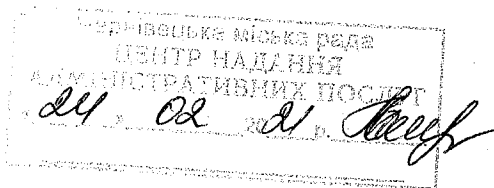 Чернівецька міська рада
ЦЕНТР НАДАННЯ
АДМІНІСТРАТИВНИХ ПОСЛУГ
24 02 20 21 р.